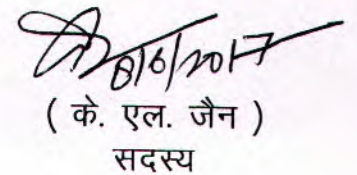 8/6/2017
( के. एल. जैन )
सदस्य